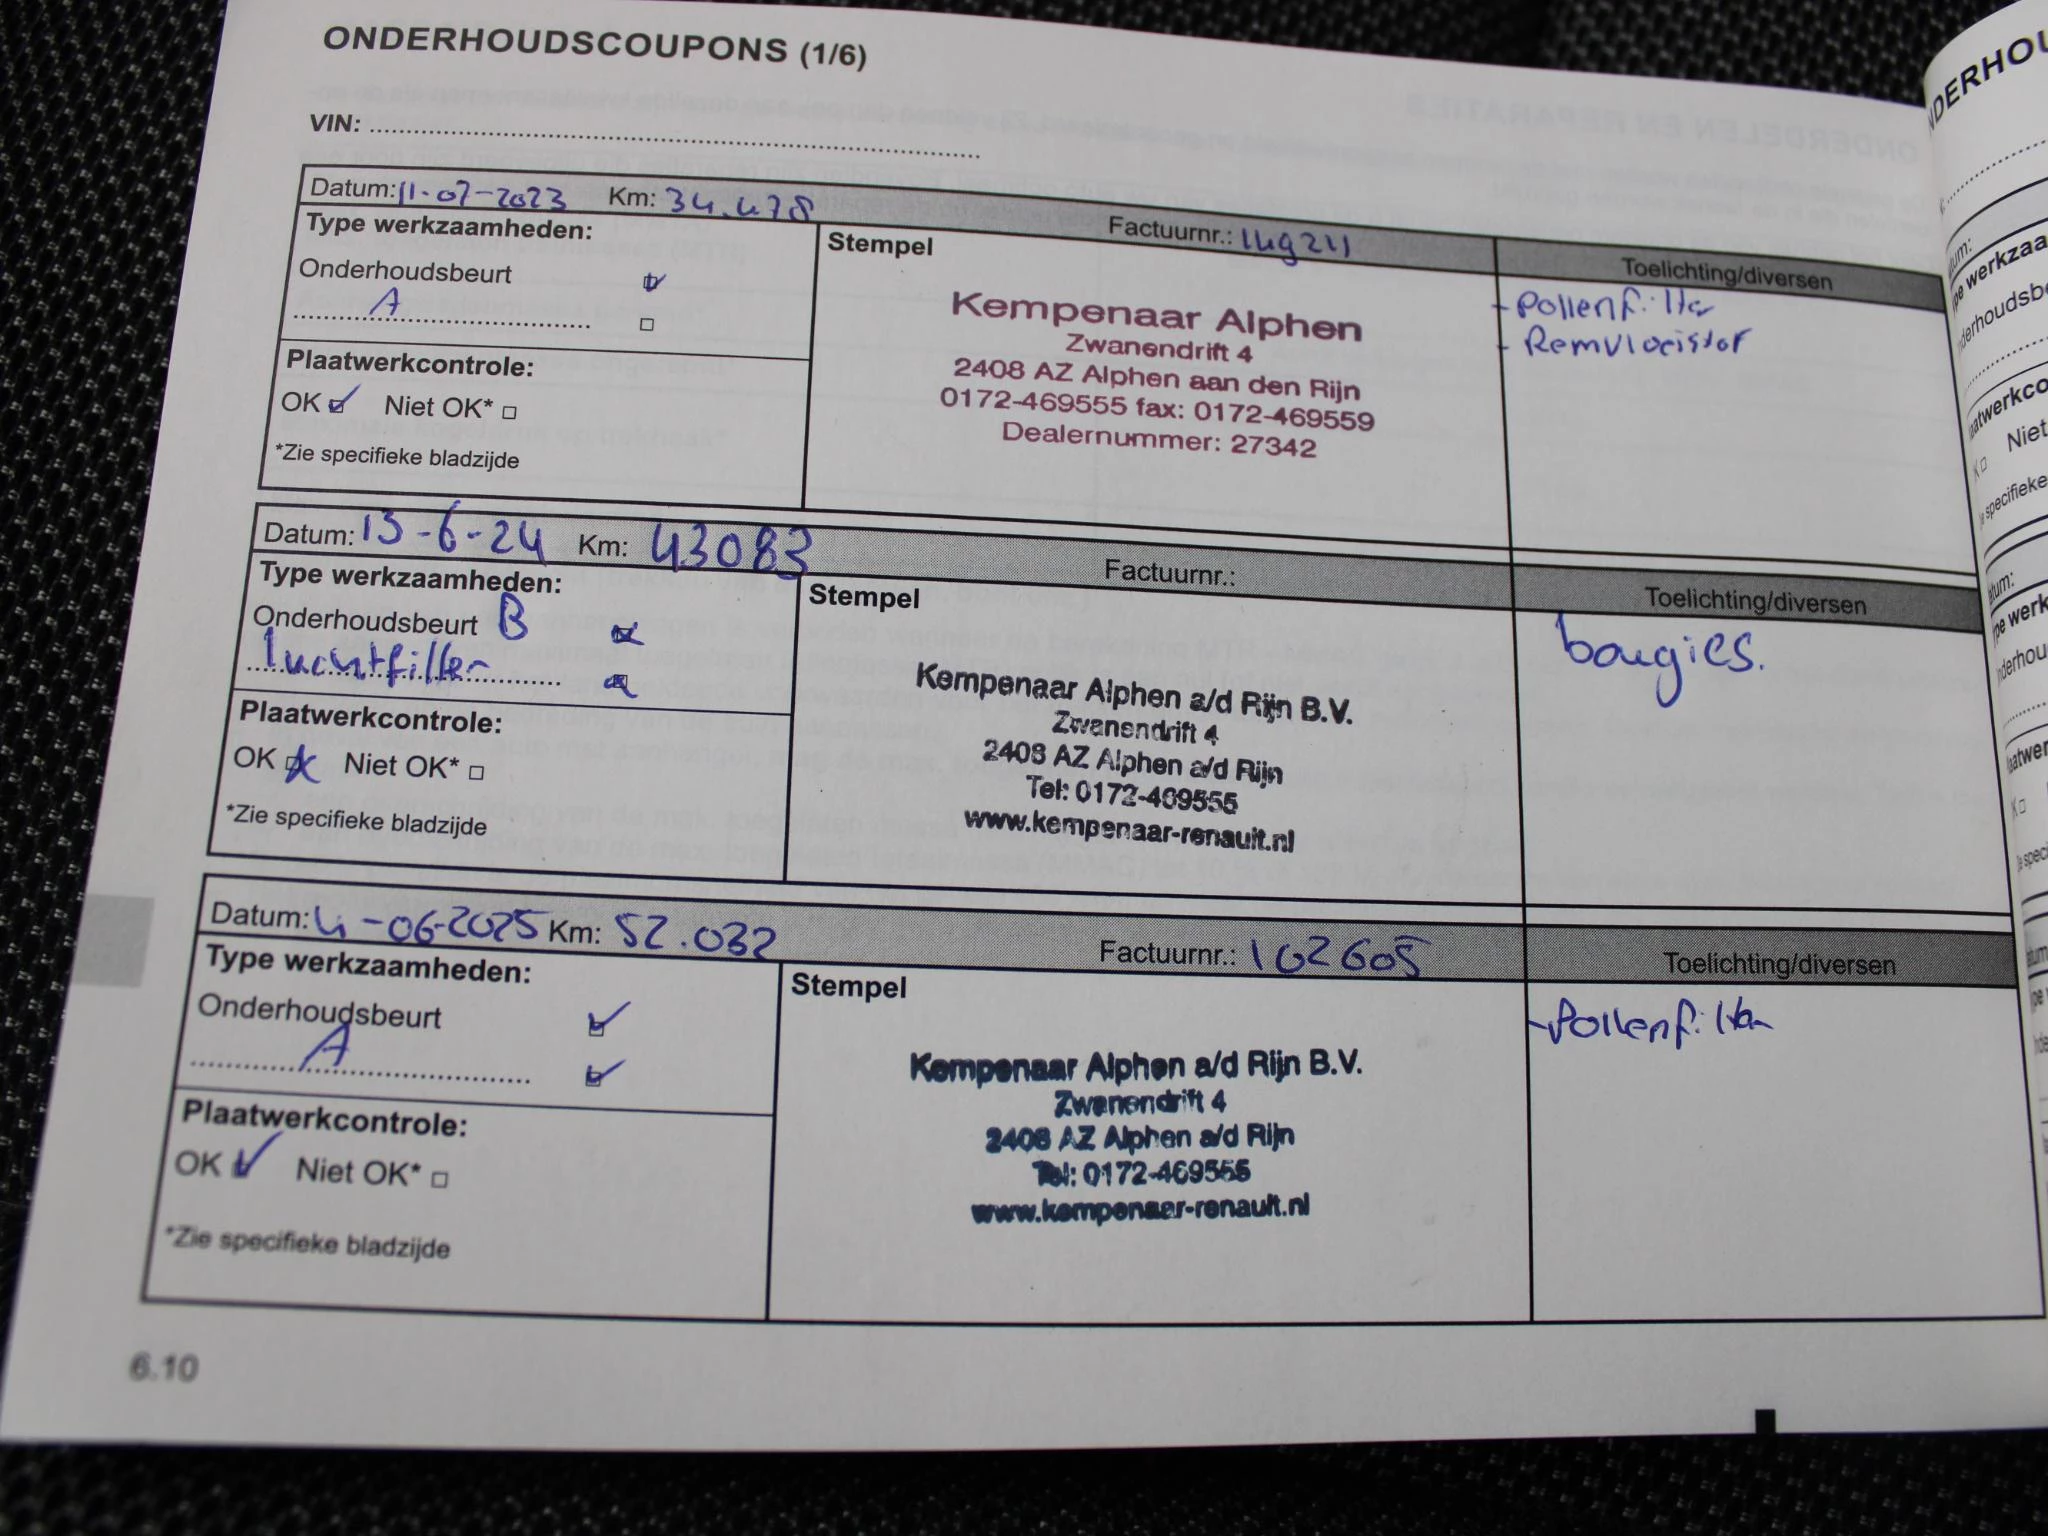 ONDERHOUDSCOUPONS (1/6)
VIN:
Datum: 11-07-2023 Km: 34.478 Factuurnr.: Toelichting/diversen
Type werkzaamheden:
Onderhoudsbeurt
A
Plaatwerkcontrole:
OK Niet OK*
*Zie specifieke bladzijde
Stempel
Kempenaar Alphen
Zwanendrift 4
2408 AZ Alphen aan den Rijn
0172-469555 fax: 0172-469559
Dealernummer: 27342
- Pollenfilter
- Remvloeistof
Datum: 13-6-24 Km: 43083 Factuurnr.: Toelichting/diversen
Type werkzaamheden:
Onderhoudsbeurt B
luchtfilter
Plaatwerkcontrole:
OK Niet OK*
*Zie specifieke bladzijde
Stempel
Kempenaar Alphen a/d Rijn B.V.
Zwanendrift 4
2408 AZ Alphen a/d Rijn
Tel: 0172-469555
www.kempenaar-renault.nl
bougies.
Datum: 4-06-2025 Km: 52.032 Factuurnr.: 102605 Toelichting/diversen
Type werkzaamheden:
Onderhoudsbeurt
A
Plaatwerkcontrole:
OK Niet OK*
*Zie specifieke bladzijde
Stempel
Kempenaar Alphen a/d Rijn B.V.
Zwanendrift 4
2408 AZ Alphen a/d Rijn
Tel: 0172-469555
www.kempenaar-renault.nl
- Pollenfilter
6.10